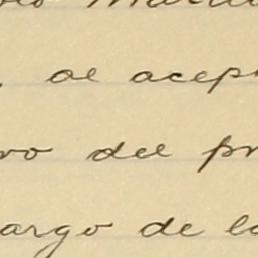 , al acep
ro del pr
argo de la